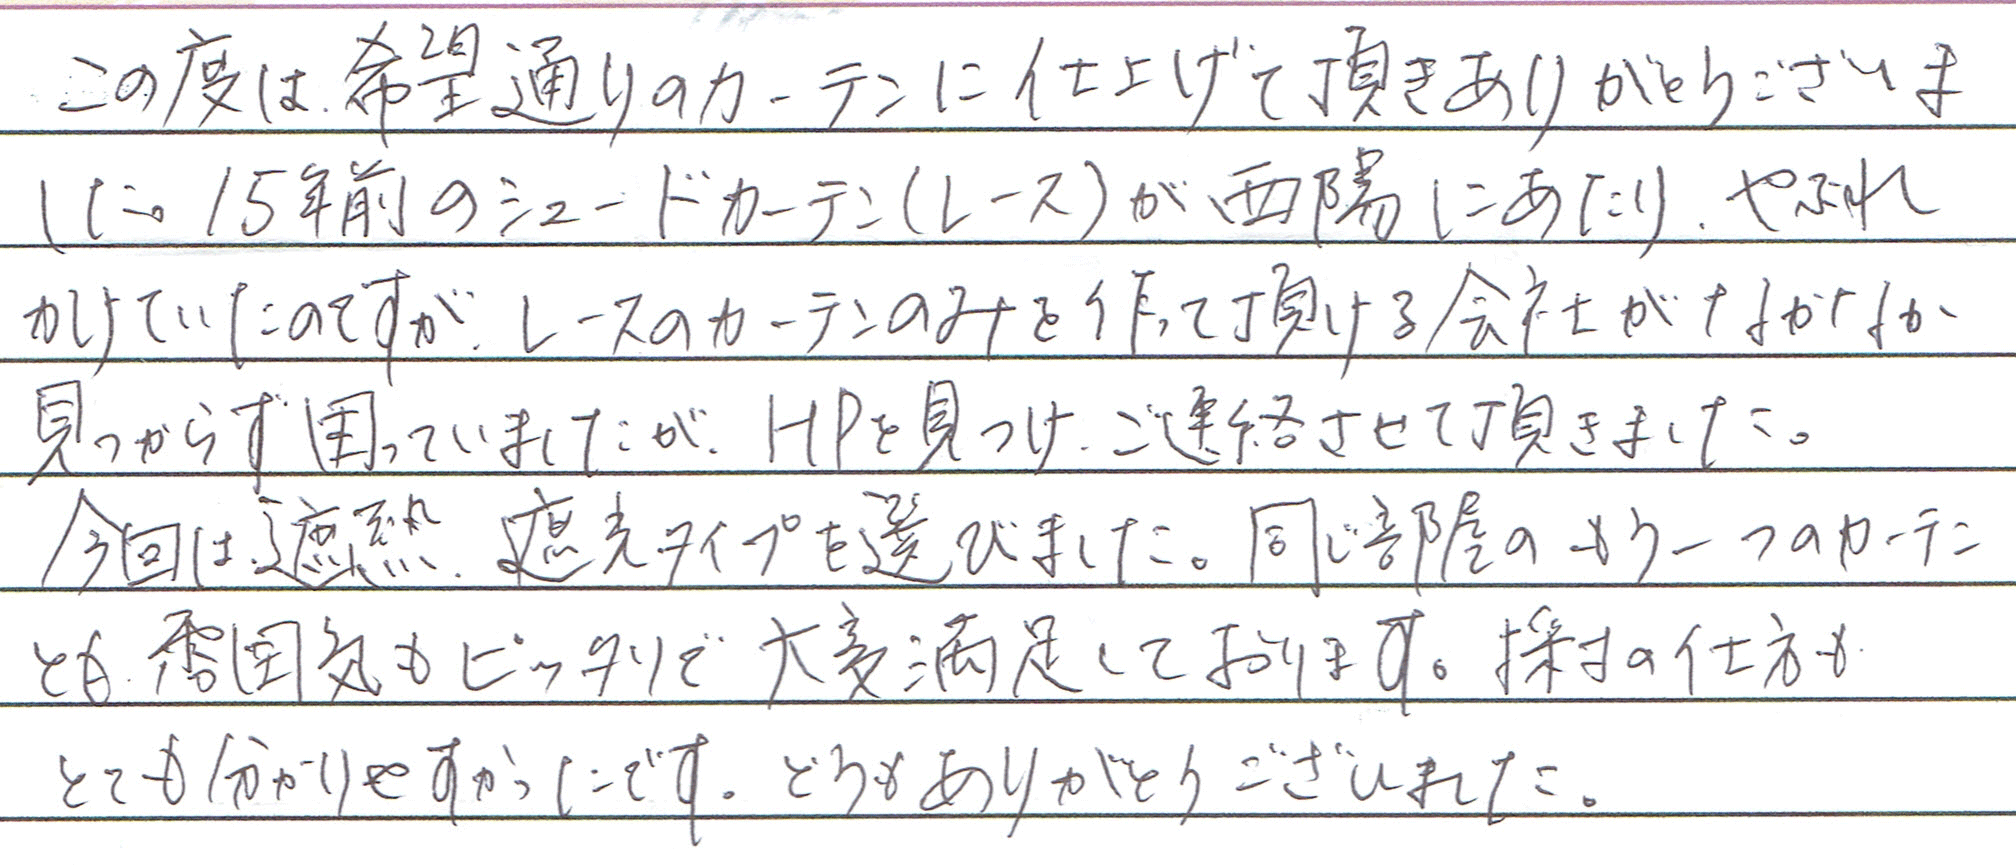 この度は、希望通りのカーテンに仕上げて頂きありがとうございま
した。15年前のシェードカーテン(レース)が西陽にあたり、やぶれ
かけていたのですが、レースのカーテンのみを作って頂ける会社がなかなか
見つからず困っていましたが、HPを見つけ、ご連絡させて頂きました。
今回は遮熱、遮光タイプを選びました。同じ部屋のもう一つのカーテン
とも雰囲気もピッタリで大変満足しております。採寸の仕方も
とても分かりやすかったです。どうもありがとうございました。